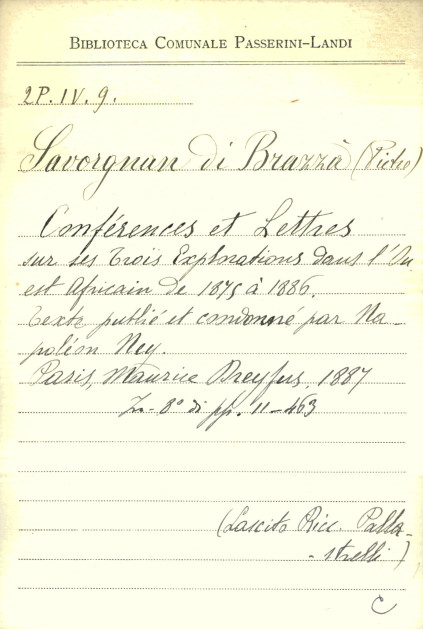 BIBLIOTECA COMUNALE PASSERINI-LANDI
2P.IV.9.
Savorgnan di Brazzà (Pietro)
Conférences et Lettres
sur ses trois Explorations dans l'Ou
est Africain de 1875 à 1886.
Texte publié et coordonné par Na-
poléon Ney.
Paris, Maurice Dreyfus, 1887
In-8° di pp. 11-463
(Lascito Ricc. Palla-
-strelli)
C